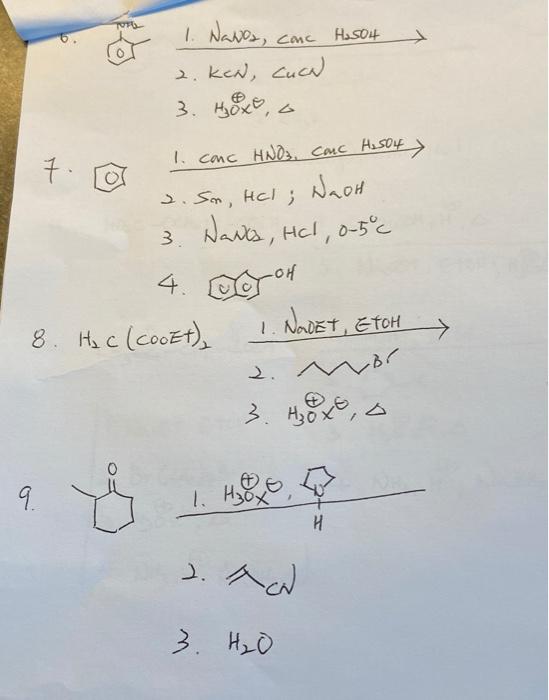 6. NH2 1. NaNO2, conc H2SO4
2. KCN, CuCN
3. H3O⊕X⊖, Δ
7. 1. conc HNO3, conc H2SO4
2. Sn, HCl ; NaOH
3. NaNO2, HCl, 0-5°C
4. OH
8. H2C(COOEt)2 1. NaOEt, EtOH
2. Br
3. H3O⊕X⊖, Δ
9. O 1. H3O⊕X⊖, N H
2. CN
3. H2O